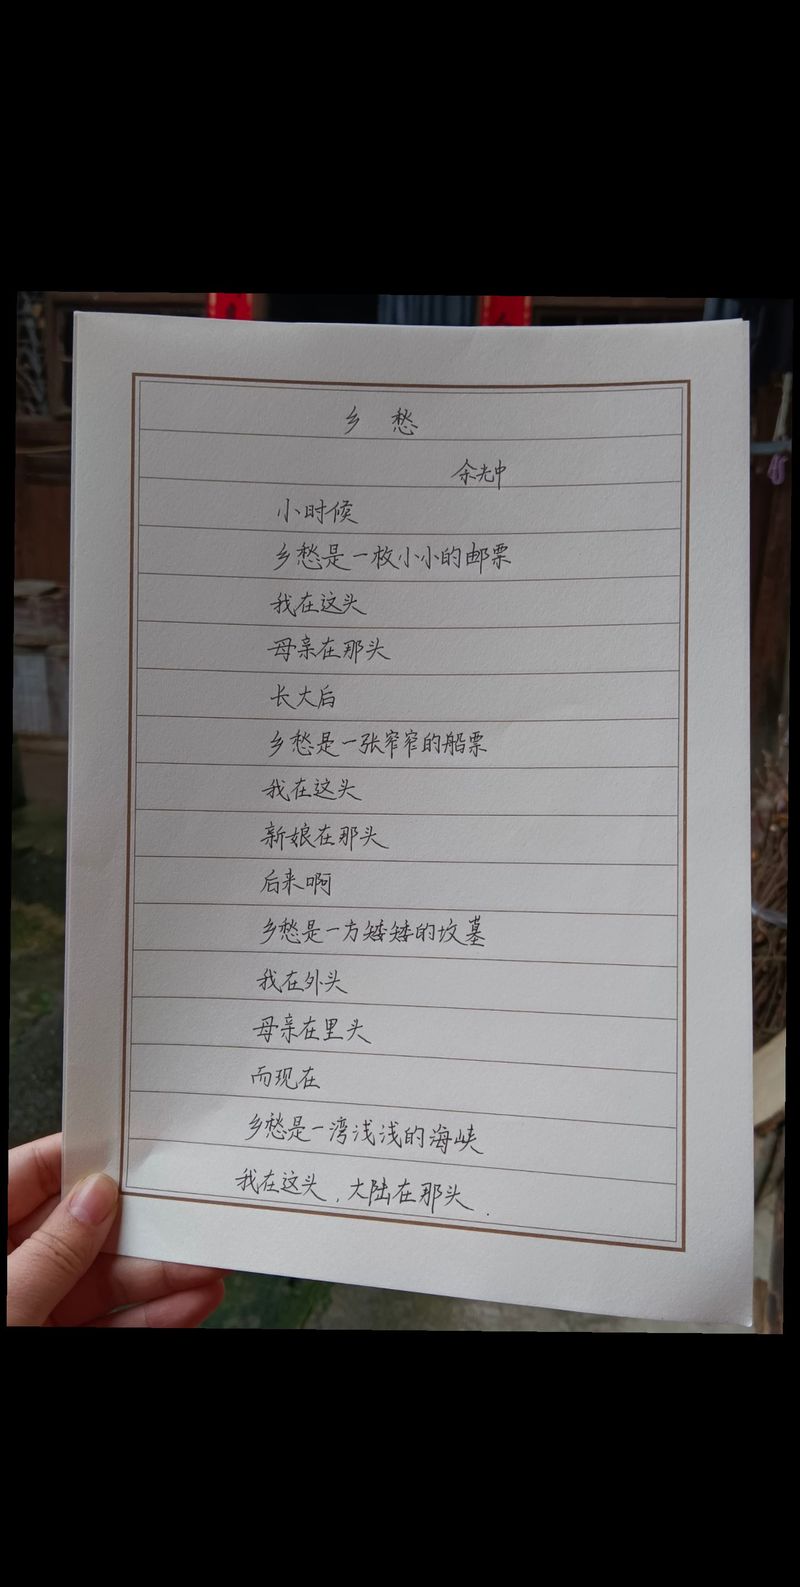 乡愁
余光中
小时候
乡愁是一枚小小的邮票
我在这头
母亲在那头
长大后
乡愁是一张窄窄的船票
我在这头
新娘在那头
后来啊
乡愁是一方矮矮的坟墓
我在外头
母亲在里头
而现在
乡愁是一湾浅浅的海峡
我在这头，大陆在那头.